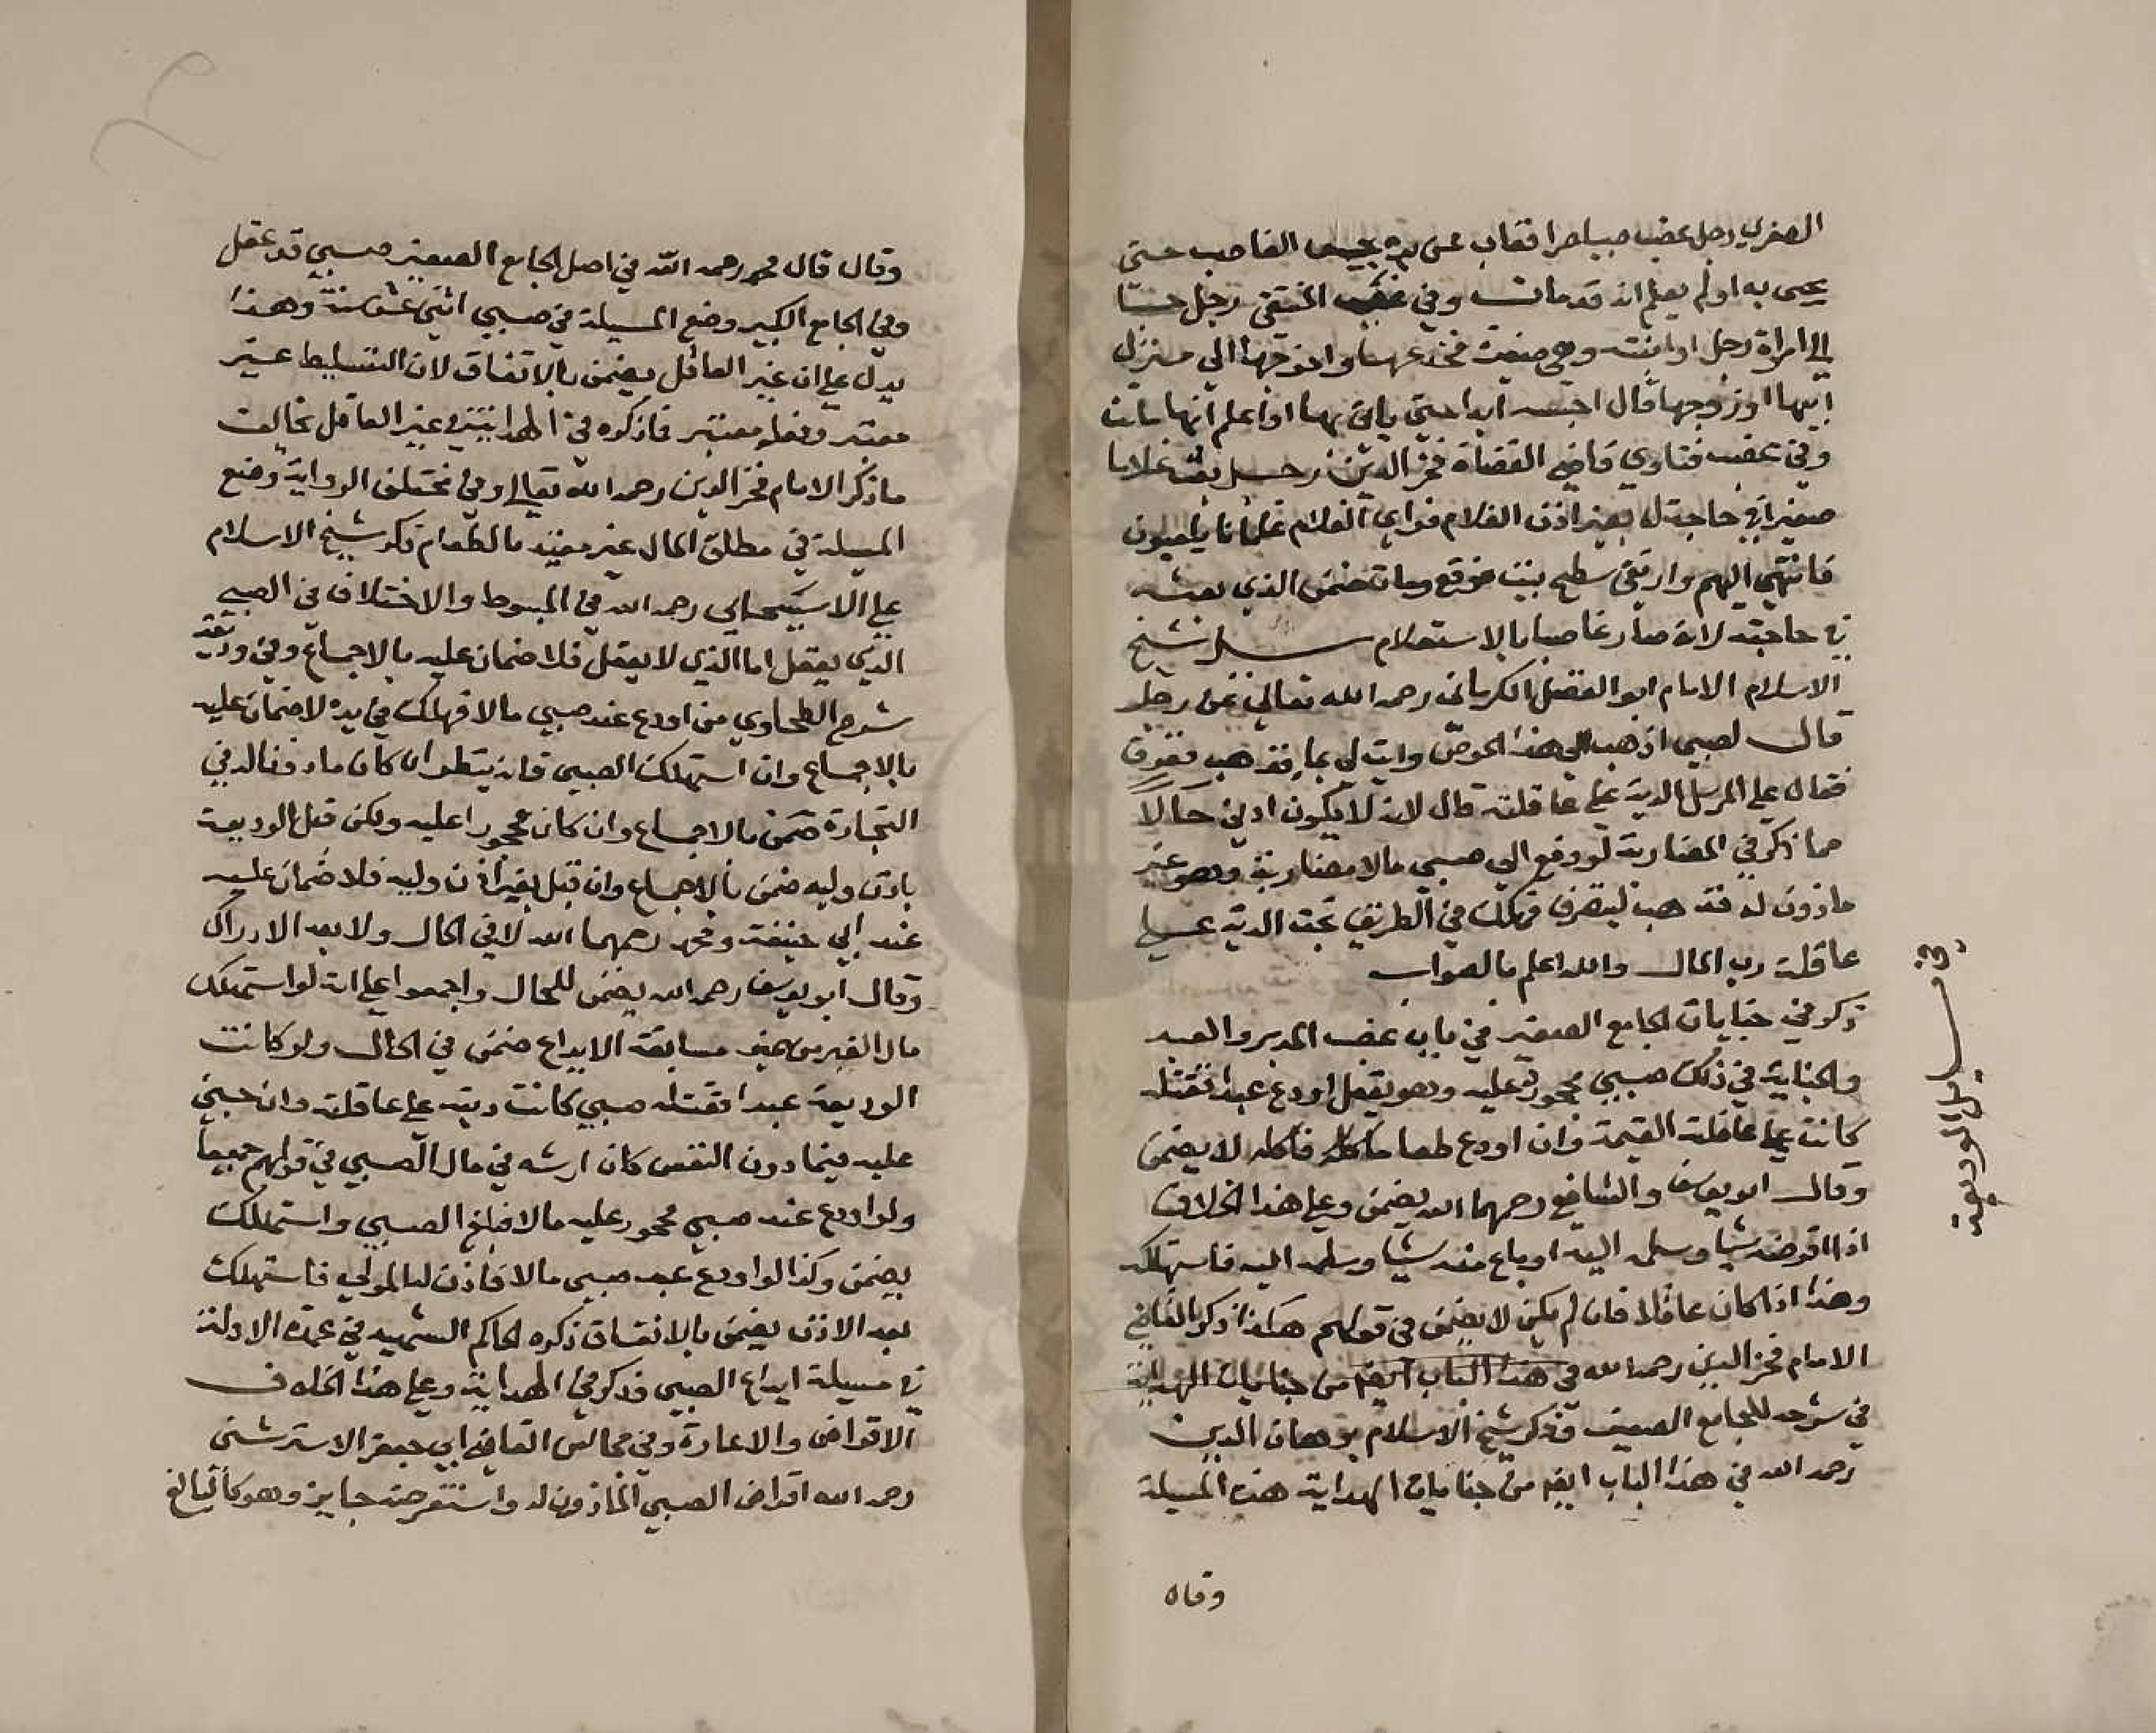 الصغري رجل غصب صبيا حرا فغاب عن يده يحبس الغاصب حتى
يجى به او لم يعلم انه قد مات وفي غصب المنتقى رجل
الى امراة رجل او ابنته وهي صغيرة فخدعها واخرجها الى منزل
ابيها او زوجها قال احبسه ابدا حتى ياتى بها او اعلم انها ماتت
وفي غصب فتاوي قاضي القضاة فخر الدين رجل بعث غلاما
صغيرا في حاجة له بغير اذن الغلام فراى الغلام غلمانا يلعبون
فانتهى اليهم وارتقى سطح بيت فوقع ومات ضمن الذي بعثه
في حاجته لانه صار غاصبا بالاستعلام سيل شيخ
الاسلام الامام ابو الفضل الكرماني رحمه الله تعالى عن رجل
قال لصبي اذهب الى هذا الحوض وايت لي بماء فذهب فغرق
فقال على المرسل الدية على عاقلته قال لانه لا يكون ادنى حالا
مما ذكر في المضاربة لو دفع الى صبي مالا مضاربة وهو غير
ماذون له فذهب ليتصرف فهلك في الطريق تجب الدية على
عاقلة رب المال والله اعلم بالصواب
في مسايل الوديعة
ذكر في جنايات الجامع الصغير في باب غصب المدبر والعبد
والجناية في ذلك صبي محجور عليه وهو يعقل اودع عبدا فقتله
كانت على عاقلته القيمة وان اودع طعاما فاكله لا يضمن
وقال ابو يوسف والشافعي رحمهما الله يضمن وعلى هذا الخلاف
اذا اقرضه شيا وسلمه اليه او باع منه شيا وسلمه اليه فاستهلكه
وهذا اذا كان عاقلا فان لم يكن لا يضمن في قولهم هكذا ذكر القاضي
الامام فخر الدين رحمه الله في هذا الباب ايضه من جنايات الهداية
في شرحه للجامع الصغير وذكر شيخ الاسلام برهان الدين
رحمه الله في هذا الباب ايضه من جنايات الهداية هذه المسيلة
وقال
وقال قال محمد رحمه الله في اصل الجامع الصغير صبي قد عقل
وفي الجامع الكبير وضع المسيلة في صبي اثنى عشر سنة وهذا
يدل على ان غير العاقل يضمن بالاتفاق لان التسليط غير
معتبر وفعله معتبر فاذكره في الهداية في غير العاقل يخالف
ما ذكر الامام فخر الدين رحمه الله تعالى وفي مختلف الرواية وضع
المسيلة في مطلق المال غير مقيد بالطعام ذكر شيخ الاسلام
على الاسبيجابي رحمه الله في المبسوط والاختلاف في الصبي
الذي يعقل اما الذي لا يعقل فلا ضمان عليه بالاجماع وفي وديعة
شرح الطحاوي من اودع عند صبي مالا فهلك في يده لا ضمان عليه
بالاجماع وان استهلك الصبي فانه ينظر ان كان ماذونا له في
التجارة ضمن بالاجماع وان كان محجورا عليه ولكن قبل الوديعة
باذن وليه ضمن بالاجماع وان قبل بغير اذن وليه فلا ضمان عليه
عند ابي حنيفة ومحمد رحمهما الله لا في الحال ولا بعد الادراك
وقال ابو يوسف رحمه الله يضمن للحال واجمعوا على انه لو استهلك
مال الغير من غير مسابقة الايداع ضمن في الحال ولو كانت
الوديعة عبدا فقتله صبي كانت ديته على عاقلته وان جنى
عليه فيما دون النفس كان ارشه في مال الصبي في قولهم جميعا
ولو اودع عند صبي محجور عليه مالا فبلغ الصبي واستهلك
يضمن وكذا لو اودع عند صبي مالا فاذن له المولى فاستهلك
بعد الاذن يضمن بالاتفاق ذكره الحاكم الشهيد في عمدة الادلة
في مسيلة ايداع الصبي وذكر في الهداية وعلى هذا الخلاف
الاقراض والاعارة وفي مجالس القاضي ابي جعفر الاسترشني
رحمه الله اقراض الصبي الماذون له واستقرضه جايز وهو كالبالغ